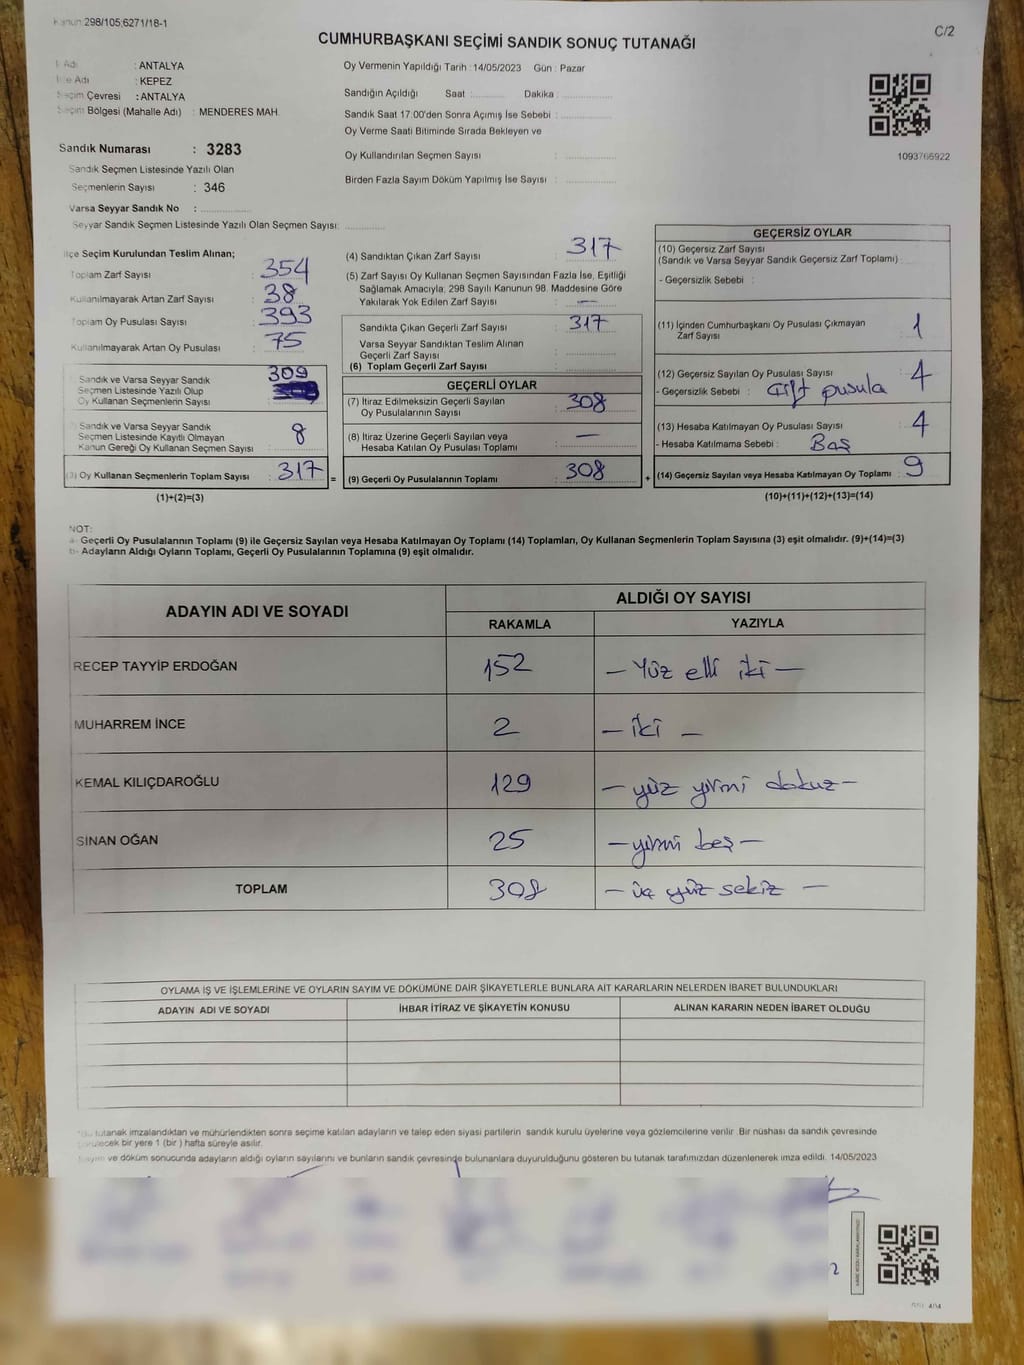 Kanun 298/105;6271/18-1
C/2
CUMHURBAŞKANI SEÇİMİ SANDIK SONUÇ TUTANAĞI
İl Adı : ANTALYA
İlçe Adı : KEPEZ
Seçim Çevresi : ANTALYA
Seçim Bölgesi (Mahalle Adı) : MENDERES MAH.
Sandık Numarası : 3283
Sandık Seçmen Listesinde Yazılı Olan
Seçmenlerin Sayısı : 346
Varsa Seyyar Sandık No :
Seyyar Sandık Seçmen Listesinde Yazılı Olan Seçmen Sayısı:
Oy Vermenin Yapıldığı Tarih : 14/05/2023 Gün : Pazar
Sandığın Açıldığı Saat : Dakika :
Sandık Saat 17:00'den Sonra Açımış İse Sebebi :
Oy Verme Saati Bitiminde Sırada Bekleyen ve
Oy Kullandırılan Seçmen Sayısı :
Birden Fazla Sayım Döküm Yapılmış İse Sayısı :
1093766922
İlçe Seçim Kurulundan Teslim Alınan;
Toplam Zarf Sayısı : 354
Kullanılmayarak Artan Zarf Sayısı : 38
Toplam Oy Pusulası Sayısı : 393
Kullanılmayarak Artan Oy Pusulası : 75
Sandık ve Varsa Seyyar Sandık
Seçmen Listesinde Yazılı Olup
Oy Kullanan Seçmenlerin Sayısı : 309
Sandık ve Varsa Seyyar Sandık
Seçmen Listesinde Kayıtlı Olmayan
Kanun Gereği Oy Kullanan Seçmen Sayısı : 8
(3) Oy Kullanan Seçmenlerin Toplam Sayısı : 317 =
(1)+(2)=(3)
(4) Sandıktan Çıkan Zarf Sayısı : 317
(5) Zarf Sayısı Oy Kullanan Seçmen Sayısından Fazla İse, Eşitliği
Sağlamak Amacıyla; 298 Sayılı Kanunun 98. Maddesine Göre
Yakılarak Yok Edilen Zarf Sayısı : —
Sandıkta Çıkan Geçerli Zarf Sayısı : 317
Varsa Seyyar Sandıktan Teslim Alınan
Geçerli Zarf Sayısı :
(6) Toplam Geçerli Zarf Sayısı :
GEÇERLİ OYLAR
(7) İtiraz Edilmeksizin Geçerli Sayılan
Oy Pusulalarının Sayısı : 308
(8) İtiraz Üzerine Geçerli Sayılan veya
Hesaba Katılan Oy Pusulası Toplamı : —
(9) Geçerli Oy Pusulalarının Toplamı : 308 +
GEÇERSİZ OYLAR
(10) Geçersiz Zarf Sayısı
(Sandık ve Varsa Seyyar Sandık Geçersiz Zarf Toplamı) :
- Geçersizlik Sebebi :
(11) İçinden Cumhurbaşkanı Oy Pusulası Çıkmayan
Zarf Sayısı : 1
(12) Geçersiz Sayılan Oy Pusulası Sayısı : 4
- Geçersizlik Sebebi : Çift pusula
(13) Hesaba Katılmayan Oy Pusulası Sayısı : 4
- Hesaba Katılmama Sebebi : Boş
(14) Geçersiz Sayılan veya Hesaba Katılmayan Oy Toplamı : 9
(10)+(11)+(12)+(13)=(14)
NOT:
a- Geçerli Oy Pusulalarının Toplamı (9) ile Geçersiz Sayılan veya Hesaba Katılmayan Oy Toplamı (14) Toplamları, Oy Kullanan Seçmenlerin Toplam Sayısına (3) eşit olmalıdır. (9)+(14)=(3)
b- Adayların Aldığı Oyların Toplamı, Geçerli Oy Pusulalarının Toplamına (9) eşit olmalıdır.
ADAYIN ADI VE SOYADI ALDIĞI OY SAYISI
RAKAMLA YAZIYLA
RECEP TAYYİP ERDOĞAN 152 — Yüz elli iki —
MUHARREM İNCE 2 — iki —
KEMAL KILIÇDAROĞLU 129 — yüz yirmi dokuz —
SİNAN OĞAN 25 — yirmi beş —
TOPLAM 308 — üç yüz sekiz —
OYLAMA İŞ VE İŞLEMLERİNE VE OYLARIN SAYIM VE DÖKÜMÜNE DAİR ŞİKAYETLERLE BUNLARA AİT KARARLARIN NELERDEN İBARET BULUNDUKLARI
ADAYIN ADI VE SOYADI İHBAR İTİRAZ VE ŞİKAYETİN KONUSU ALINAN KARARIN NEDEN İBARET OLDUĞU
tutanak imzalandıktan ve mühürlendikten sonra seçime katılan adayların ve talep eden siyasi partilerin sandık kurulu üyelerine veya gözlemcilerine verilir. Bir nüshası da sandık çevresinde
görülecek bir yere 1 (bir) hafta süreyle asılır.
Sayım ve döküm sonucunda adayların aldığı oyların sayılarını ve bunların sandık çevresinde bulunanlara duyurulduğunu gösteren bu tutanak tarafımızdan düzenlenerek imza edildi. 14/05/2023